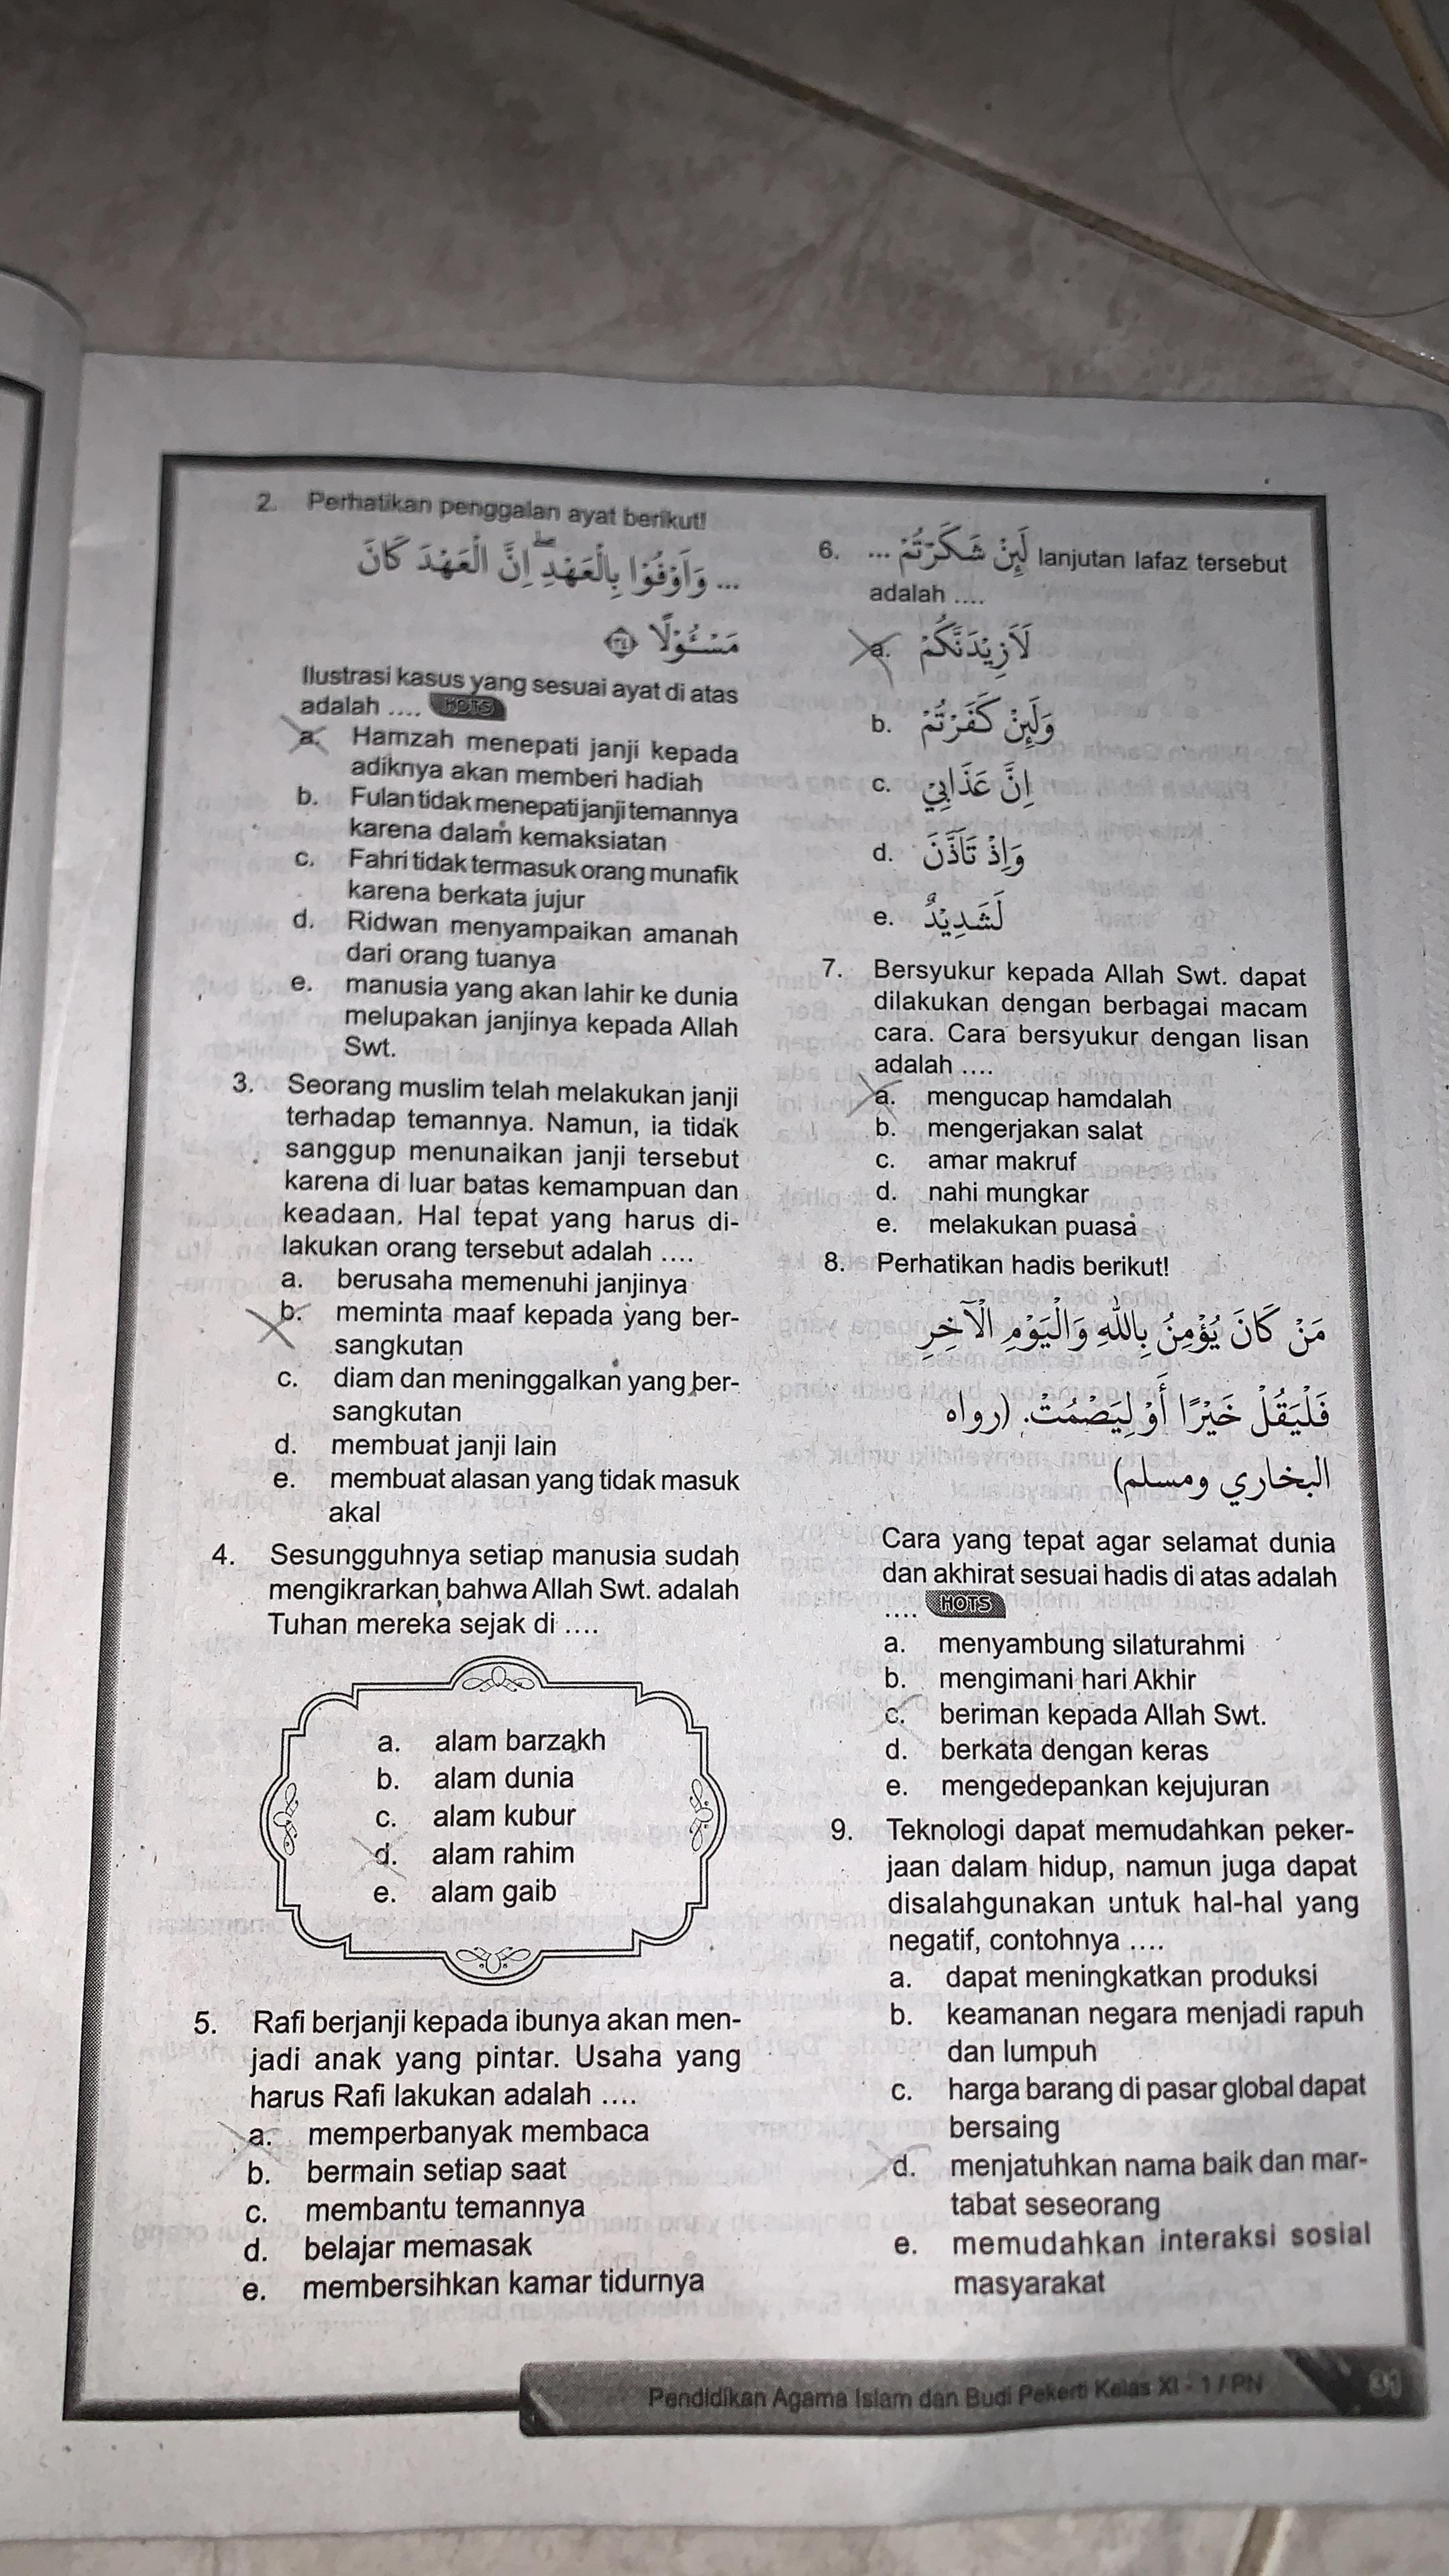 2. Perhatikan penggalan ayat berikut!
... وَاَوْفُوْا بِالْعَهْدِۖ اِنَّ الْعَهْدَ كَانَ
مَسْـُٔوْلًا ۝٣٤
Ilustrasi kasus yang sesuai ayat di atas
adalah .... HOTS
a. Hamzah menepati janji kepada
adiknya akan memberi hadiah
b. Fulan tidak menepati janji temannya
karena dalam kemaksiatan
c. Fahri tidak termasuk orang munafik
karena berkata jujur
d. Ridwan menyampaikan amanah
dari orang tuanya
e. manusia yang akan lahir ke dunia
melupakan janjinya kepada Allah
Swt.
3. Seorang muslim telah melakukan janji
terhadap temannya. Namun, ia tidak
sanggup menunaikan janji tersebut
karena di luar batas kemampuan dan
keadaan. Hal tepat yang harus di-
lakukan orang tersebut adalah ....
a. berusaha memenuhi janjinya
b. meminta maaf kepada yang ber-
sangkutan
c. diam dan meninggalkan yang ber-
sangkutan
d. membuat janji lain
e. membuat alasan yang tidak masuk
akal
4. Sesungguhnya setiap manusia sudah
mengikrarkan bahwa Allah Swt. adalah
Tuhan mereka sejak di ....
a. alam barzakh
b. alam dunia
c. alam kubur
d. alam rahim
e. alam gaib
5. Rafi berjanji kepada ibunya akan men-
jadi anak yang pintar. Usaha yang
harus Rafi lakukan adalah ....
a. memperbanyak membaca
b. bermain setiap saat
c. membantu temannya
d. belajar memasak
e. membersihkan kamar tidurnya
6. ... لَىِٕنْ شَكَرْتُمْ lanjutan lafaz tersebut
adalah ....
a. لَاَزِيْدَنَّكُمْ
b. وَلَىِٕنْ كَفَرْتُمْ
c. اِنَّ عَذَابِيْ
d. وَاِذْ تَاَذَّنَ
e. لَشَدِيْدٌ
7. Bersyukur kepada Allah Swt. dapat
dilakukan dengan berbagai macam
cara. Cara bersyukur dengan lisan
adalah ....
a. mengucap hamdalah
b. mengerjakan salat
c. amar makruf
d. nahi mungkar
e. melakukan puasa
8. Perhatikan hadis berikut!
مَنْ كَانَ يُؤْمِنُ بِاللهِ وَالْيَوْمِ الْآخِرِ
فَلْيَقُلْ خَيْرًا أَوْ لِيَصْمُتْ. (رواه
البخاري ومسلم)
Cara yang tepat agar selamat dunia
dan akhirat sesuai hadis di atas adalah
.... HOTS
a. menyambung silaturahmi
b. mengimani hari Akhir
c. beriman kepada Allah Swt.
d. berkata dengan keras
e. mengedepankan kejujuran
9. Teknologi dapat memudahkan peker-
jaan dalam hidup, namun juga dapat
disalahgunakan untuk hal-hal yang
negatif, contohnya ....
a. dapat meningkatkan produksi
b. keamanan negara menjadi rapuh
dan lumpuh
c. harga barang di pasar global dapat
bersaing
d. menjatuhkan nama baik dan mar-
tabat seseorang
e. memudahkan interaksi sosial
masyarakat
Pendidikan Agama Islam dan Budi Pekerti Kelas XI - 1 / PN